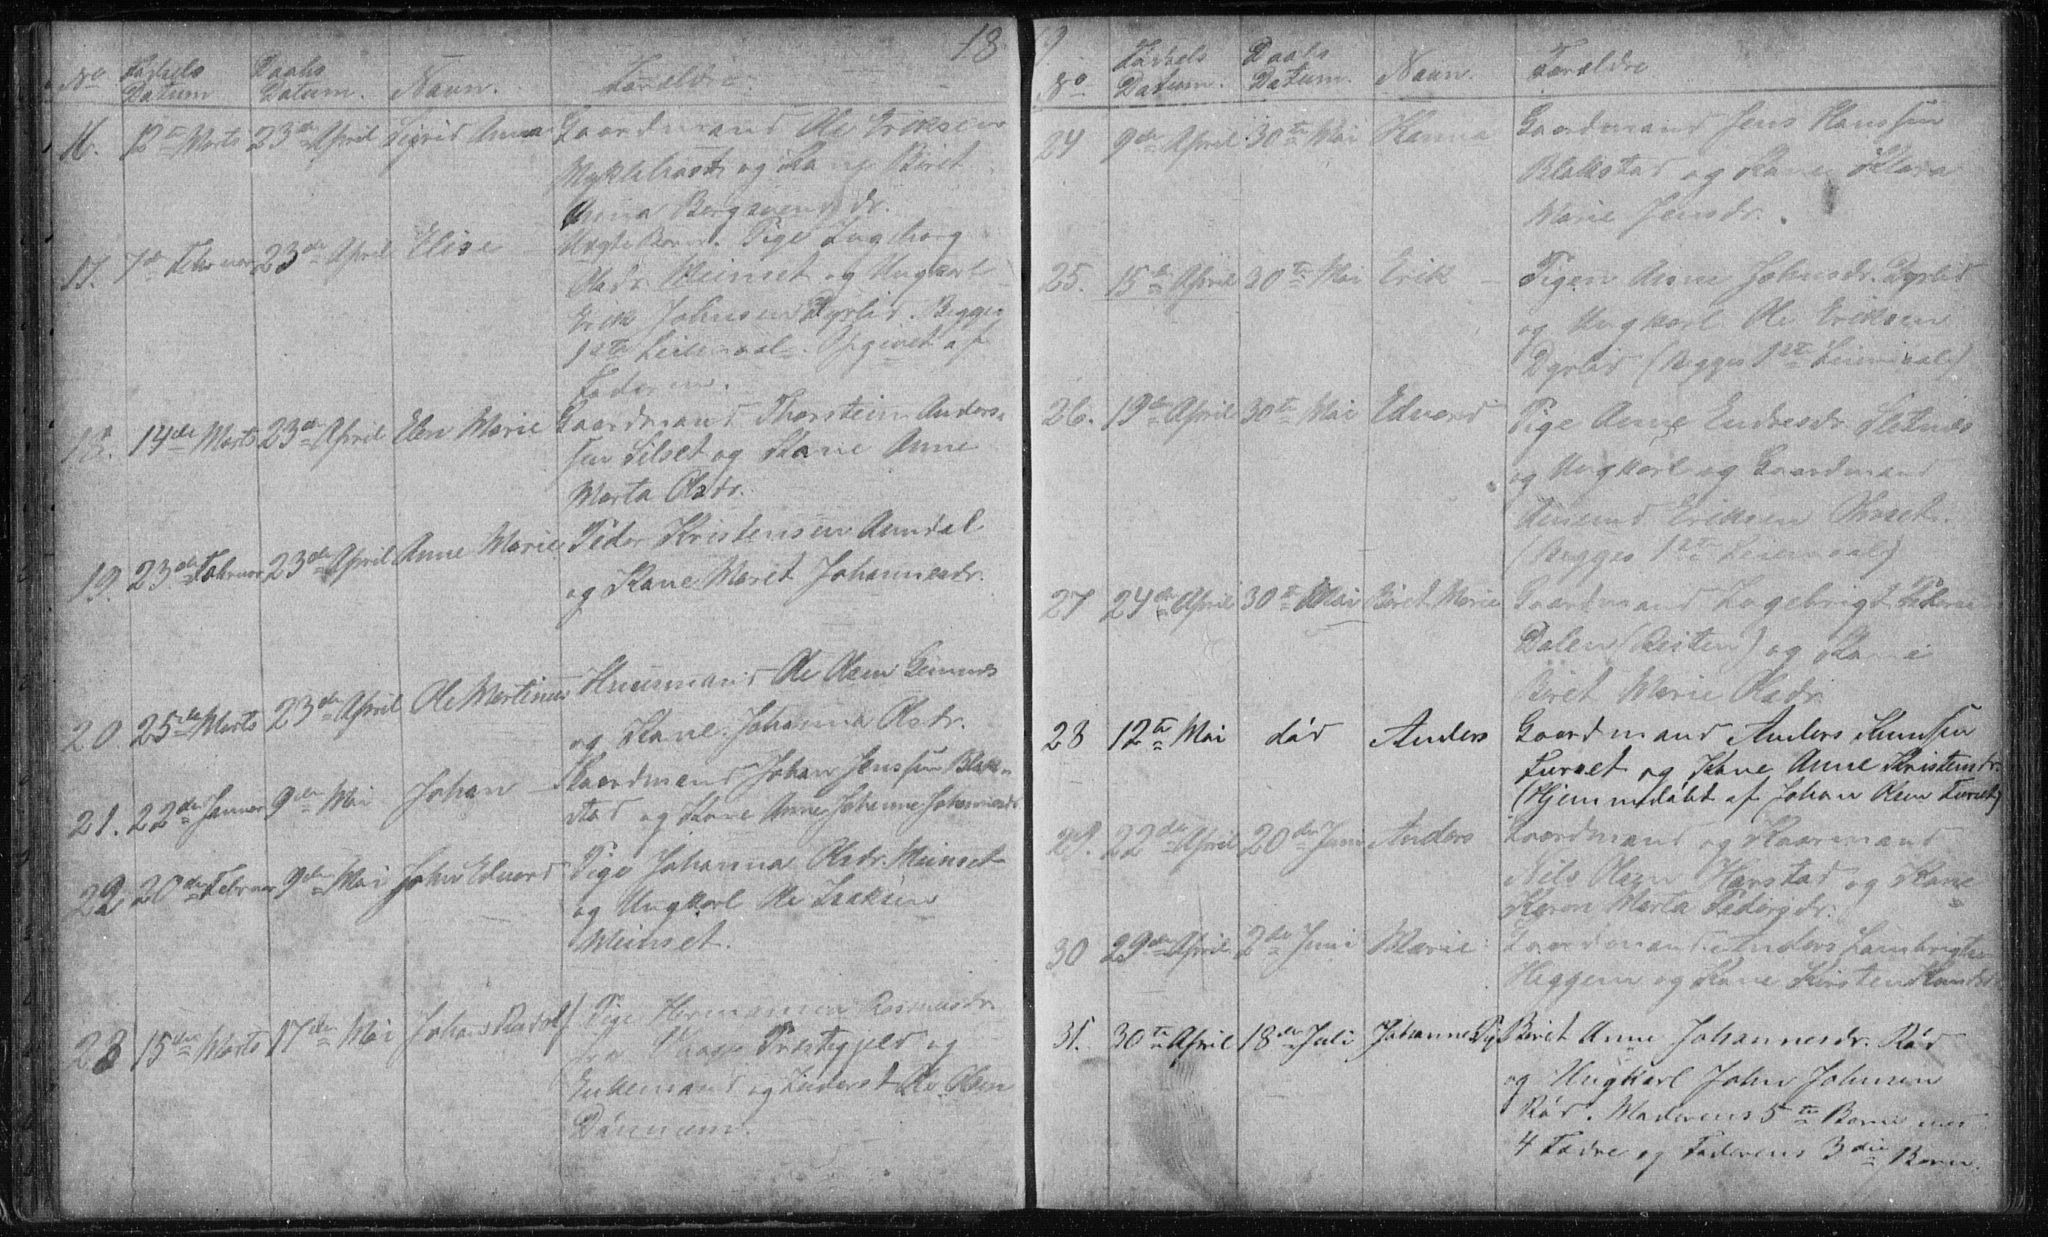 18
No Fødsels Datum Daabs Datum. Navn. Forældre
16. 12te Marts 23de April Sigrid Anna Gaardmand Ole Eriksen
Myklebost og Kone Beret
Anna Bergsvensdr.
17. 7de Februar 23de April Elise Uægte Barn. Pige Ingeborg
Olsdr. Meinset og Ungkarl
Erik Johnsen Dyrlid. Begges
1ste Leiermaal. Opgivet af
Faderen.
18. 14de Marts 23de April Elen Marie Gaardmand Thorstein Anders-
sen Silset og Kone Anne
Marta Olsdr.
19. 23de Februar 23de April Anne Marie Peder Kristensen Aandal
og Kone Maret Johannesdr.
20. 25de Marts 23de April Ole Martinus Huusmand Ole Olsen Gimnes
og Kone Johanna Olsdr.
21. 22de Januar 9de Mai Johan Gaardmand Johan Jenssen Blak-
stad og Kone Anne Johanne Johannesdr
22. 20de Februar 9de Mai John Edvard Pige Johanna Olsdr. Meinset
og Ungkarl Ole Isaksen
Meinset.
23 15de Marts 17de Mai Johan Rudolf Pige Hermanna Rasmusdr.
fra Vaage Præstegjeld og
Enkemand og Inderst Ole Olsen
19
No. Fødsels Datum. Daabs Datum. Navn. Forældre
24 9de April 30te Mai Hanna Gaardmand Jens Hanssen
Blakstad og Kone Klara
Marie Jensdr.
25. 15de April 30te Mai Erik Pigen Anne Johnsdr. Dyrlid
og Ungkarl Ole Eriksen
Dyrlid (Begges 1ste Leiermaal)
26. 19de April 30te Mai Edvard Pige Anne Endresdr. Sletnes
og Ungkarl og Gaardmand
Amund Eriksen
(Begges 1ste Leiermaal)
27 24de April 30te Mai Beret Marie Gaardmand Ingebrigt Pedersen
Dalen (Reiten) og Kone
Beret Marie Olsdr.
28 12te Mai død Anders Gaardmand Anders Knudsen
Furset og Kone Anne Kristensdr.
(Hjemmedøbt af Johan Olsen Furset)
29. 22de April 20de Juni Anders Gaardmand og
Nils Olsen Harstad og Kone
Karen Marta Pedersdr.
30 29de April 2de Juni Marie Gaardmand Anders Ingebrigtsen
Heggem og Kone Kirsten Knudsdr.
31. 30te April 18de Juli Johanne Pige Beret Anne Johannesdr. Rød
og Ungkarl John Johnsen
Rød. Moderens 5te Barn med
4 Fædre og Faderens 3die Barn.